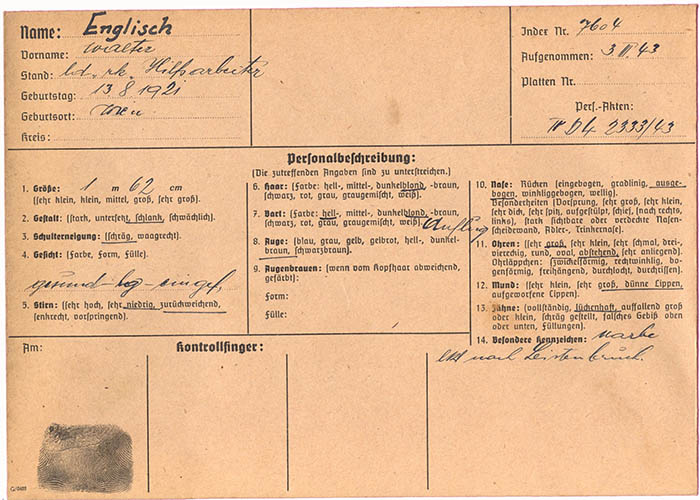 Name: Englisch
Vorname: Walter
Stand: led. rk. Hilfsarbeiter
Geburtstag: 13 8 1921
Geburtsort: Wien
Kreis:
Index Nr. 7604
Aufgenommen: 3 II. 43
Platten Nr.
Pers.-Akten:
IV D4 2333/43
Personalbeschreibung:
(Die zutreffenden Angaben sind zu unterstreichen.)
1. Größe: 1 m 62 cm
(sehr klein, klein, mittel, groß, sehr groß).
2. Gestalt: (stark, untersetzt, schlank, schwächlich).
3. Schulterneigung: (schräg, waagrecht).
4. Gesicht: (Farbe, Form, Fülle).
gesund - lög - eingef.
5. Stirn: (sehr hoch, sehr niedrig, zurückweichend,
senkrecht, vorspringend).
6. Haar: (Farbe: hell-, mittel-, dunkelblond, -braun,
schwarz, rot, grau, graugemischt, weiß).
7. Bart: (Farbe: hell-, mittel-, dunkelblond, -braun,
schwarz, rot, grau, graugemischt, weiß). Anflug
8. Auge: (blau, grau, gelb, gelbrot, hell-, dunkel-
braun, schwarzbraun).
9. Augenbrauen: (wenn vom Kopfhaar abweichend,
gefärbt):
Form:
Fülle:
10. Nase: Rücken (eingebogen, gradlinig, ausge-
bogen, winkliggebogen, wellig).
Besonderheiten (Vorsprung, sehr groß, sehr klein,
sehr dick, sehr spitz, aufgestülpt, schief, (nach rechts,
links), stark sichtbare oder verdeckte Nasen-
scheidewand, Adler-, Trinkernase).
11. Ohren: (sehr groß, sehr klein, sehr schmal, drei-
viereckig, rund, oval, abstehend, sehr anliegend).
Ohrläppchen: (zwickelförmig, rechtwinklig, bo-
genförmig, freihängend, durchlocht, durchrissen).
12. Mund: (sehr klein, sehr groß, dünne Lippen,
aufgeworfene Lippen).
13. Zähne: (vollständig, lückenhaft, auffallend groß
oder klein, schräg gestellt, falsches Gebiß oben
oder unten, Füllungen).
14. Besondere Kennzeichen: Narbe
nach Leistenbruch.
Am:
Kontrollfinger: